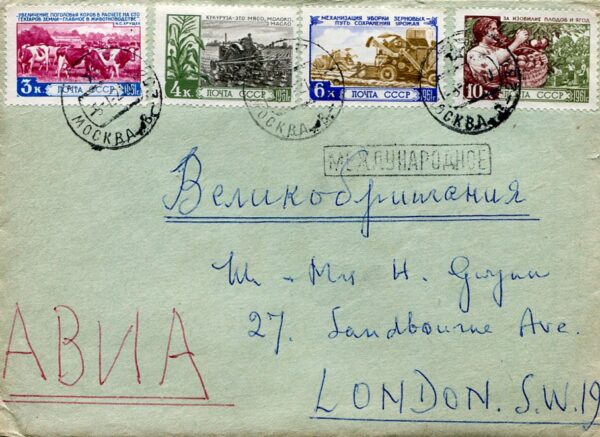 УВЕЛИЧЕНИЕ ПОГОЛОВЬЯ КОРОВ В РАСЧЕТЕ НА СТО
ГЕКТАРОВ ЗЕМЛИ - ГЛАВНОЕ В ЖИВОТНОВОДСТВЕ
Н.С. ХРУЩЕВ
3 к. ПОЧТА СССР 1961
КУКУРУЗА-ЭТО МЯСО, МОЛОКО,
МАСЛО
4 к. ПОЧТА СССР 1961
МЕХАНИЗАЦИЯ УБОРКИ ЗЕРНОВЫХ-
ПУТЬ СОХРАНЕНИЯ УРОЖАЯ
6 к ПОЧТА СССР 1961
ЗА ИЗОБИЛИЕ ПЛОДОВ И ЯГОД
10 к ПОЧТА СССР 1961
МОСКВА
МОСКВА
МОСКВА
МЕЖДУНАРОДНОЕ
Великобритания
H.
27. Sandbourne Ave.
АВИА
LONDON. S.W.19